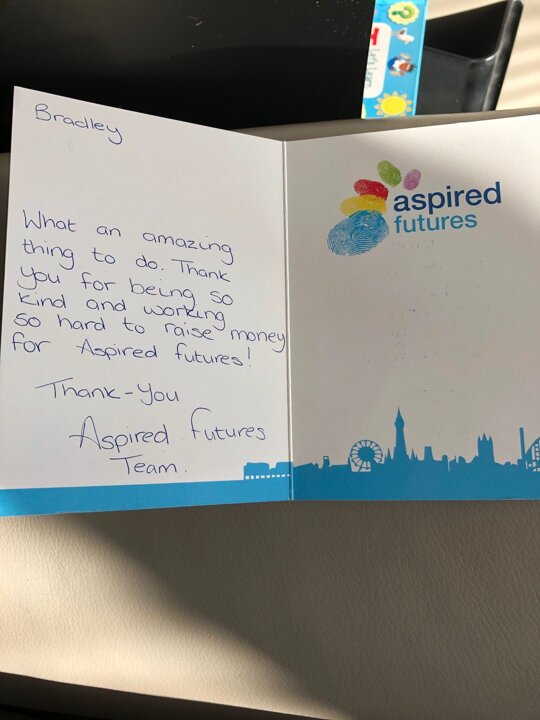 Let's Learn
Bradley
What an amazing
thing to do. Thank
you for being so
kind and working
so hard to raise money
for Aspired futures!
Thank-You
Aspired futures
Team.
aspired
futures